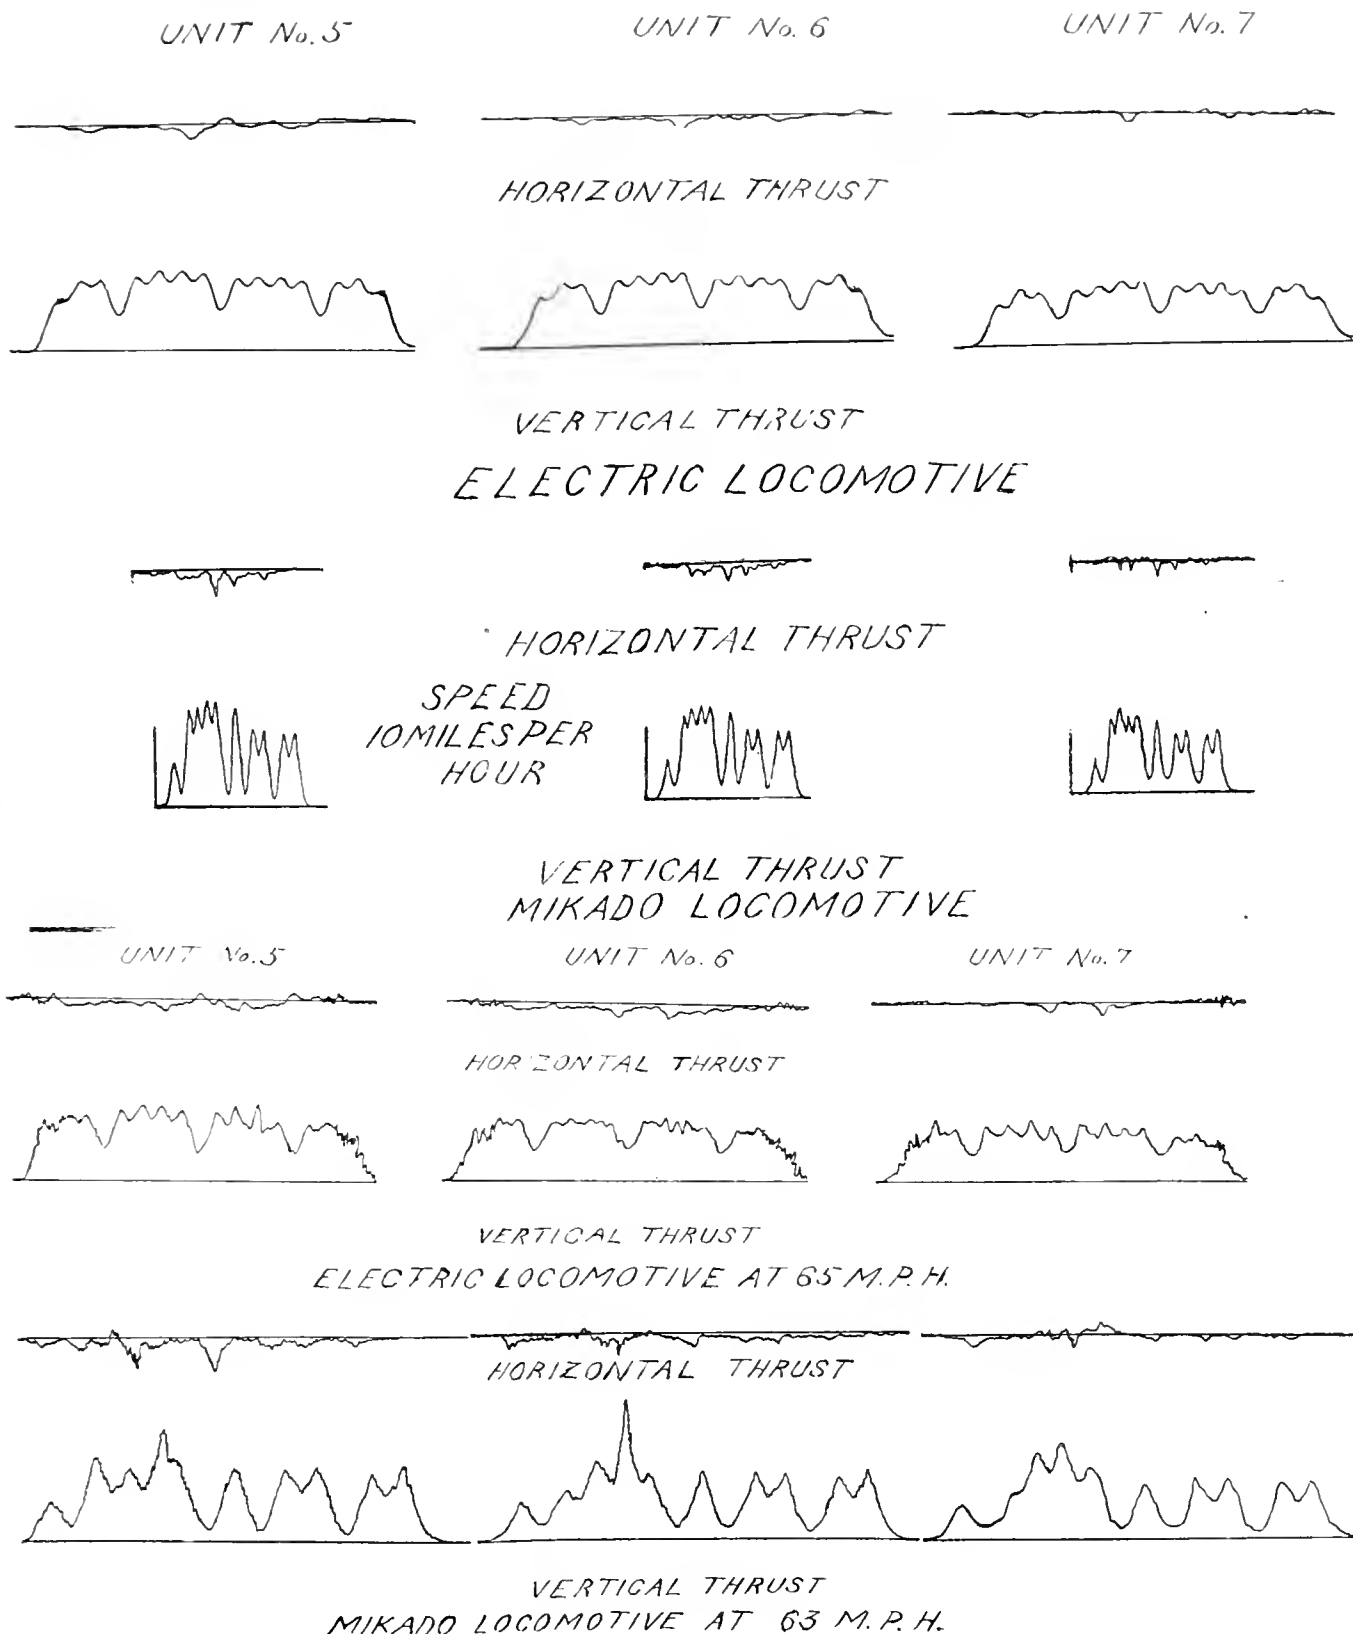 UNIT No. 5
UNIT No. 6
UNIT No. 7
HORIZONTAL THRUST
VERTICAL THRUST
ELECTRIC LOCOMOTIVE
HORIZONTAL THRUST
SPEED
10 MILES PER
HOUR
VERTICAL THRUST
MIKADO LOCOMOTIVE
UNIT No. 5
UNIT No. 6
UNIT No. 7
HORIZONTAL THRUST
VERTICAL THRUST
ELECTRIC LOCOMOTIVE AT 65 M.P.H.
HORIZONTAL THRUST
VERTICAL THRUST
MIKADO LOCOMOTIVE AT 63 M.P.H.